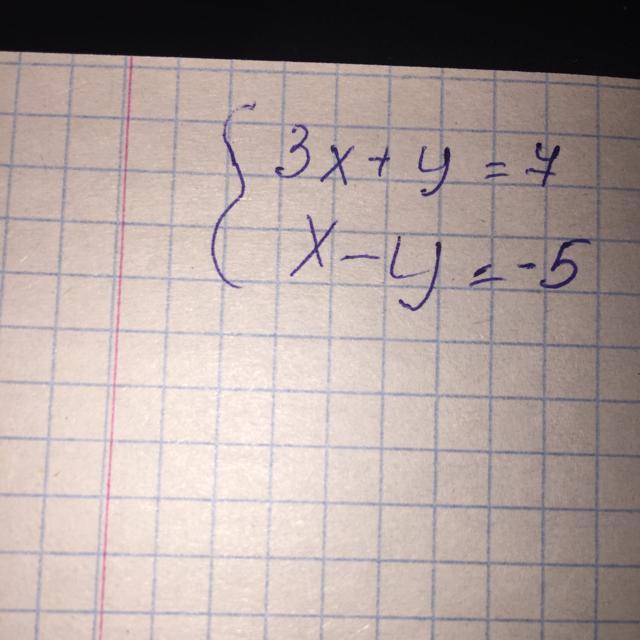 { 3x + y = 7
x - y = -5